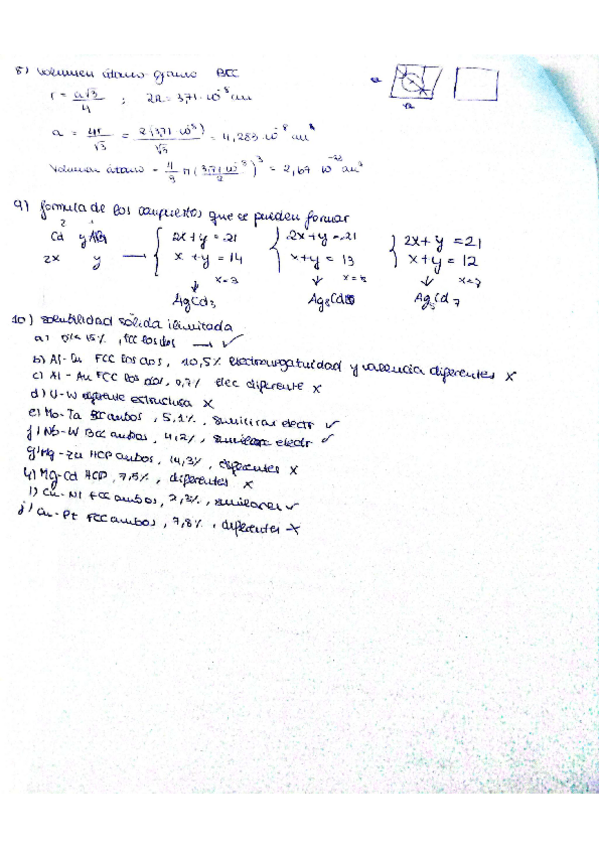 8) Volumen átomo-gramo BCC
r = a√3/4 ; 2R = 3,71·10⁻⁸ cm
a = 4r/√3 = 2(3,71·10⁻⁸)/√3 = 4,283·10⁻⁸ cm
Volumen átomo = 4/3 π (3,71·10⁻⁸/2)³ = 2,67 10⁻²³ cm³
9) formula de los compuestos que se pueden formar
Cd y Ag
2x y → { 2x+y = 21 { 2x+y = 21 { 2x+y = 21
x+y = 14 x+y = 13 x+y = 12
x=3
AgCd₃ Ag₅Cd₇
10) solubilidad sólida ilimitada
a) 15%, FCC los dos → ✓
b) Al-Cu FCC los dos, 10,5% electronegatividad y valencia diferentes X
c) Al-Au FCC los dos, 0,7% elec diferente X
d) U-W diferente estructura X
e) Mo-Ta BCC ambos, 5,1%, similar electr ✓
f) Nb-W BCC ambos, 4,2%, similar electr ✓
g) Mg-Zn HCP ambos, 14,3%, diferentes X
h) Mg-Cd HCP, 7,5%, diferentes X
i) Cu-Ni FCC ambos, 2,3%, similares ✓
j) Cu-Pt FCC ambos, 7,8%, diferentes X